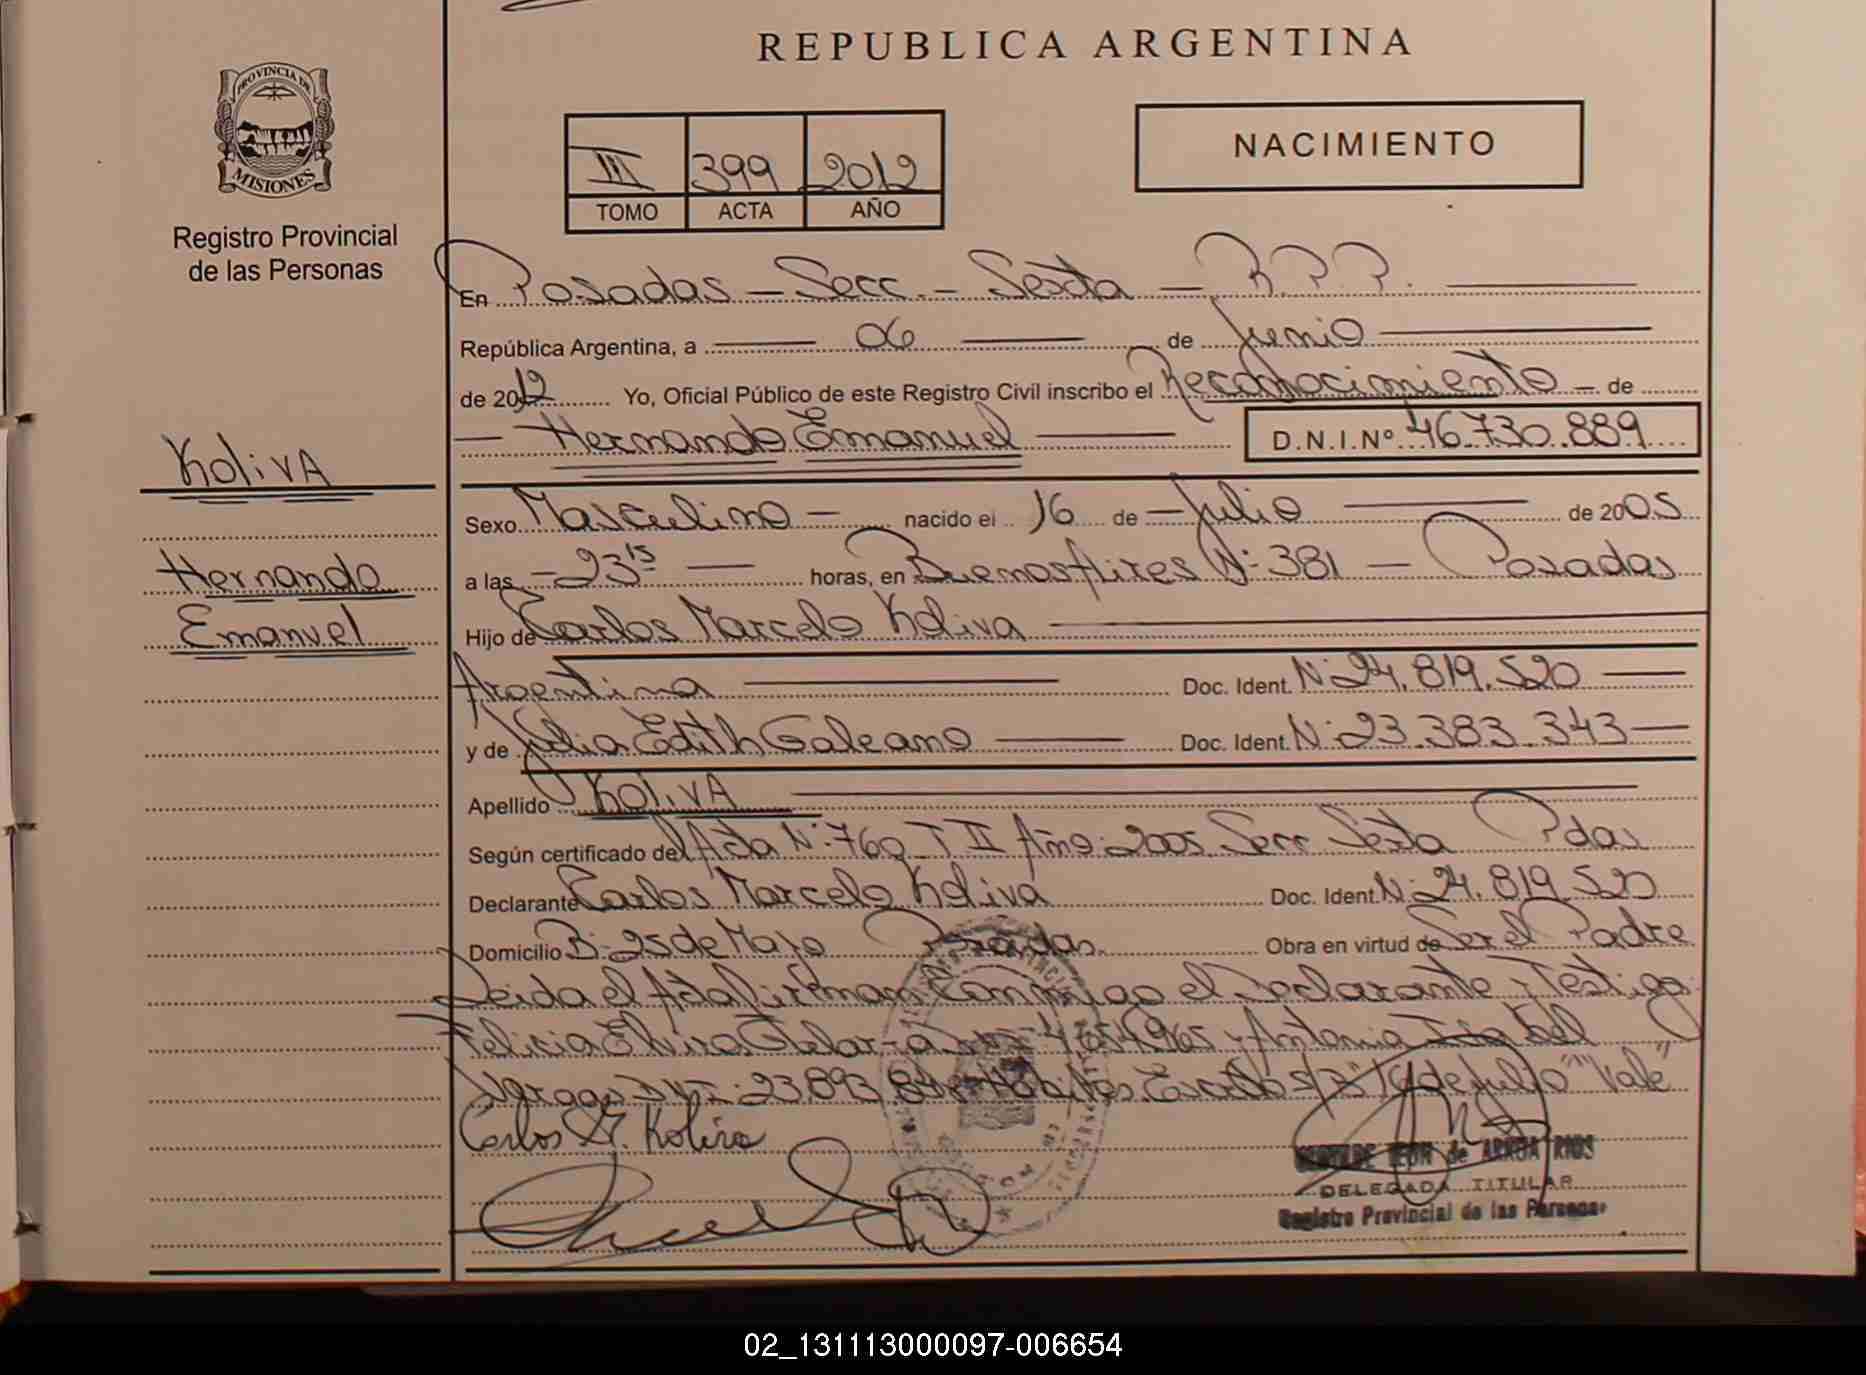 REPUBLICA ARGENTINA
PROVINCIA DE MISIONES
Registro Provincial
de las Personas
III 399 2012
TOMO ACTA AÑO
NACIMIENTO
En Posadas - Secc. - Sexta - R.P.P.
República Argentina, a 06 de Junio
de 2012 Yo, Oficial Público de este Registro Civil inscribo el Reconocimiento - de
- Hernando Emanuel D.N.I.Nº 46.730.889
KolivA
Hernando
Emanuel
Sexo Masculino - nacido el 16 de - Julio de 2005
a las - 23 15 - horas, en Buenos Aires Nº 381 - Posadas
Hijo de Carlos Marcelo Koliva
Argentina Doc. Ident. Nº 24.819.520
y de Julia Edith Galeano Doc. Ident. Nº 23.383.343
Apellido KolivA
Según certificado del Acta Nº 760 T II Año: 2005 Secc Sexta Pdas
Declarante Carlos Marcelo Koliva Doc. Ident. Nº 24.819.520
Domicilio Bº 25 de Mayo Posadas. Obra en virtud de Ser el Padre
Leida el Acta firman Conmigo el Declarante y Testigo
Felicia Elvira y Antonia
Vargas DNI: 23.893. de Julio "Vale"
Carlos M. Koliva
LEON de ARRUA RIOS
DELEGADA TITULAR
Registro Provincial de las Personas
02_131113000097-006654